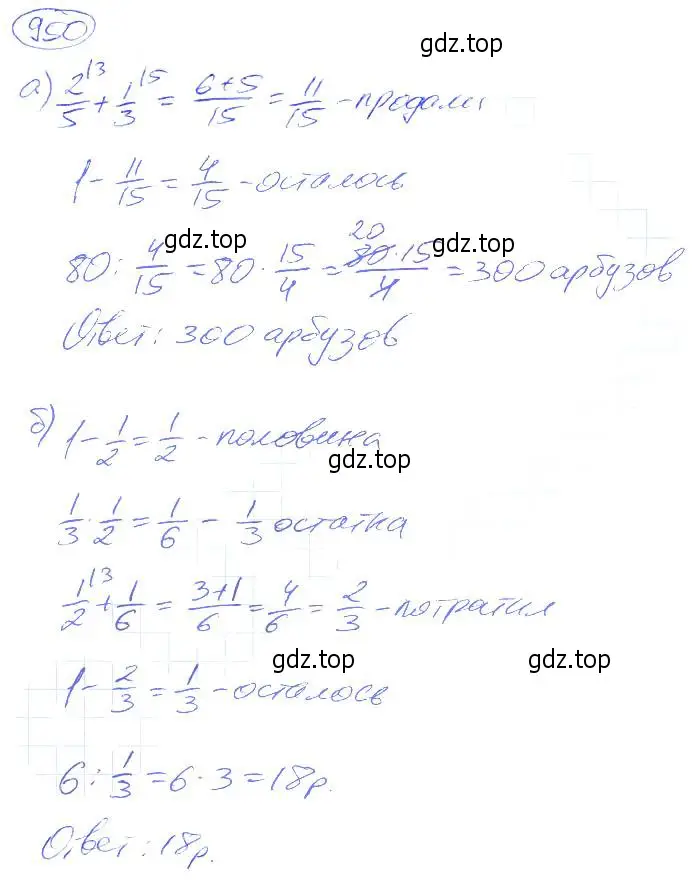 950
gdz.top
а) 2/5^\3 + 1/3^\5 = (6+5)/15 = 11/15 - продали
1 - 11/15 = 4/15 - осталось
gdz.top gdz.top
80 : 4/15 = 80 · 15/4 = (80^20 · 15)/4 = 300 арбузов
Ответ: 300 арбузов
б) 1 - 1/2 = 1/2 - половина
gdz.top
1/3 · 1/2 = 1/6 - 1/3 остатка
1/2^\3 + 1/6 = (3+1)/6 = 4/6 = 2/3 - потратил
gdz.top gdz.top
1 - 2/3 = 1/3 - осталось
6 : 1/3 = 6 · 3 = 18 р.
gdz.top
Ответ: 18 р.